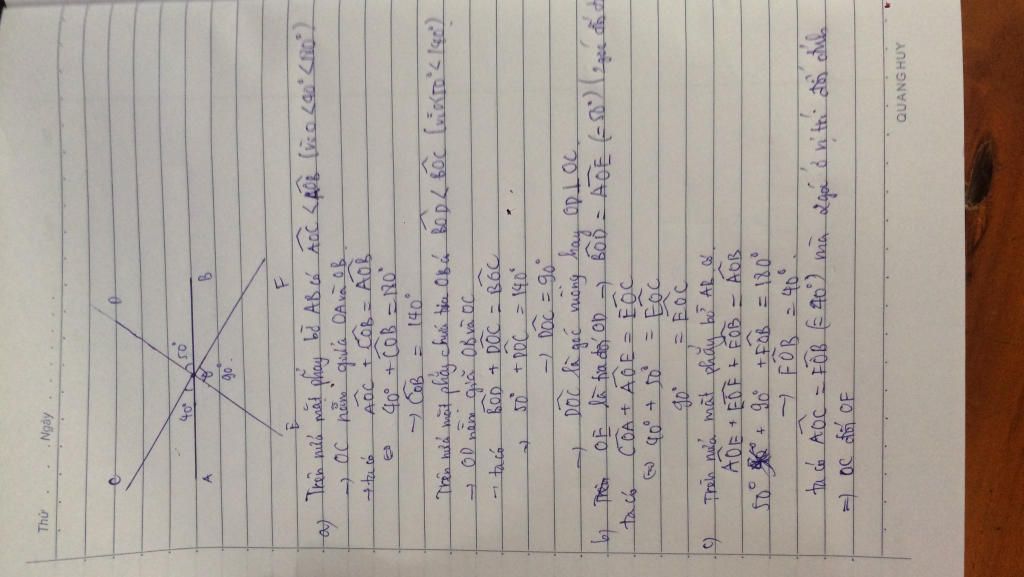 Thứ
Ngày
C
D
40°
50°
A
O
B
90°
E
F
a) Trên nửa mặt phẳng bờ AB có AOC < AOB (vì 0 < 40° < 180°)
→ OC nằm giữa OA và OB
→ ta có AOC + COB = AOB
⇔ 40° + COB = 180°
→ COB = 140°
Trên nửa mặt phẳng chứa tia OB có BOD < BOC (vì 50° < 140°)
→ OD nằm giữa OB và OC
→ ta có BOD + DOC = BOC
→ 50° + DOC = 140°
→ DOC = 90°
→ DOC là góc vuông hay OD ⊥ OC
b) OE là tia đối OD → BOD = AOE (= 50°) (2 góc đối
ta có COA + AOE = EOC
⇔ 40° + 50° = EOC
90° = EOC
c) Trên nửa mặt phẳng bờ AB có
AOE + EOF + FOB = AOB
50° + 90° + FOB = 180°
→ FOB = 40°
ta có AOC = FOB (= 40°) mà 2 góc ở vị trí đối đỉnh
⇒ OC đối OF
QUANG HUY